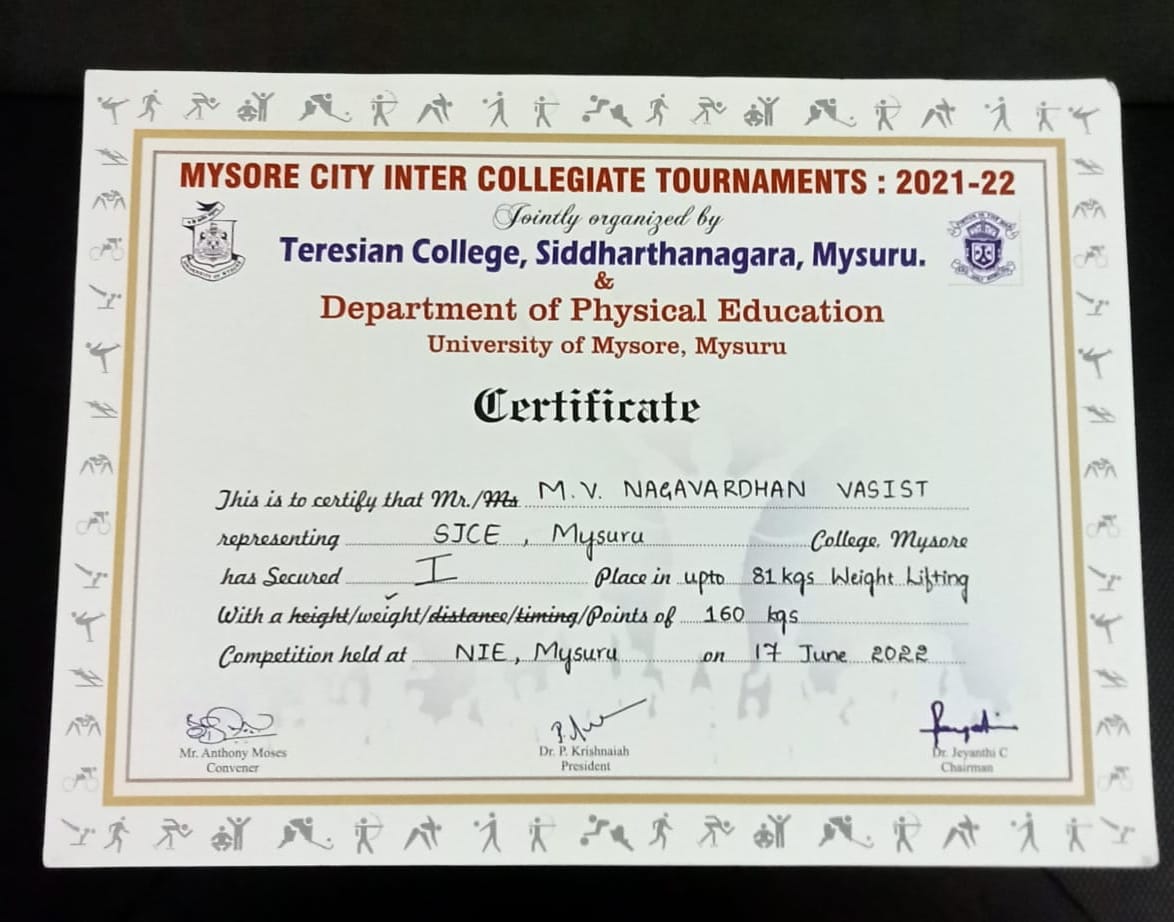 MYSORE CITY INTER COLLEGIATE TOURNAMENTS : 2021-22
Jointly organized by
Teresian College, Siddharthanagara, Mysuru.
&
Department of Physical Education
University of Mysore, Mysuru
Certificate
This is to certify that Mr./Ms M.V. NAGAVARDHAN VASIST
representing SJCE , Mysuru College, Mysore
has Secured I Place in upto 81 kgs Weight Lifting
With a height/weight/distance/timing/Points of 160 kgs
Competition held at NIE, Mysuru on 17 June 2022
Mr. Anthony Moses
Convener
Dr. P. Krishnaiah
President
Dr. Jeyanthi C
Chairman